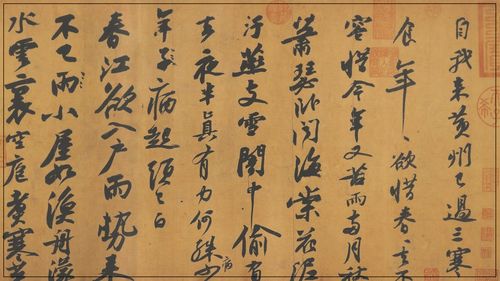 自我来黄州已過三寒
食年〻欲惜春〻去不
容惜今年又苦雨兩月秋
蕭瑟卧聞海棠花泥
汙燕支雪闇中偷負
去夜半真有力何殊病少
年子病起頭已白
春江欲入户雨勢来
不已雨小屋如漁舟濛
水雲裏空庖煮寒菜